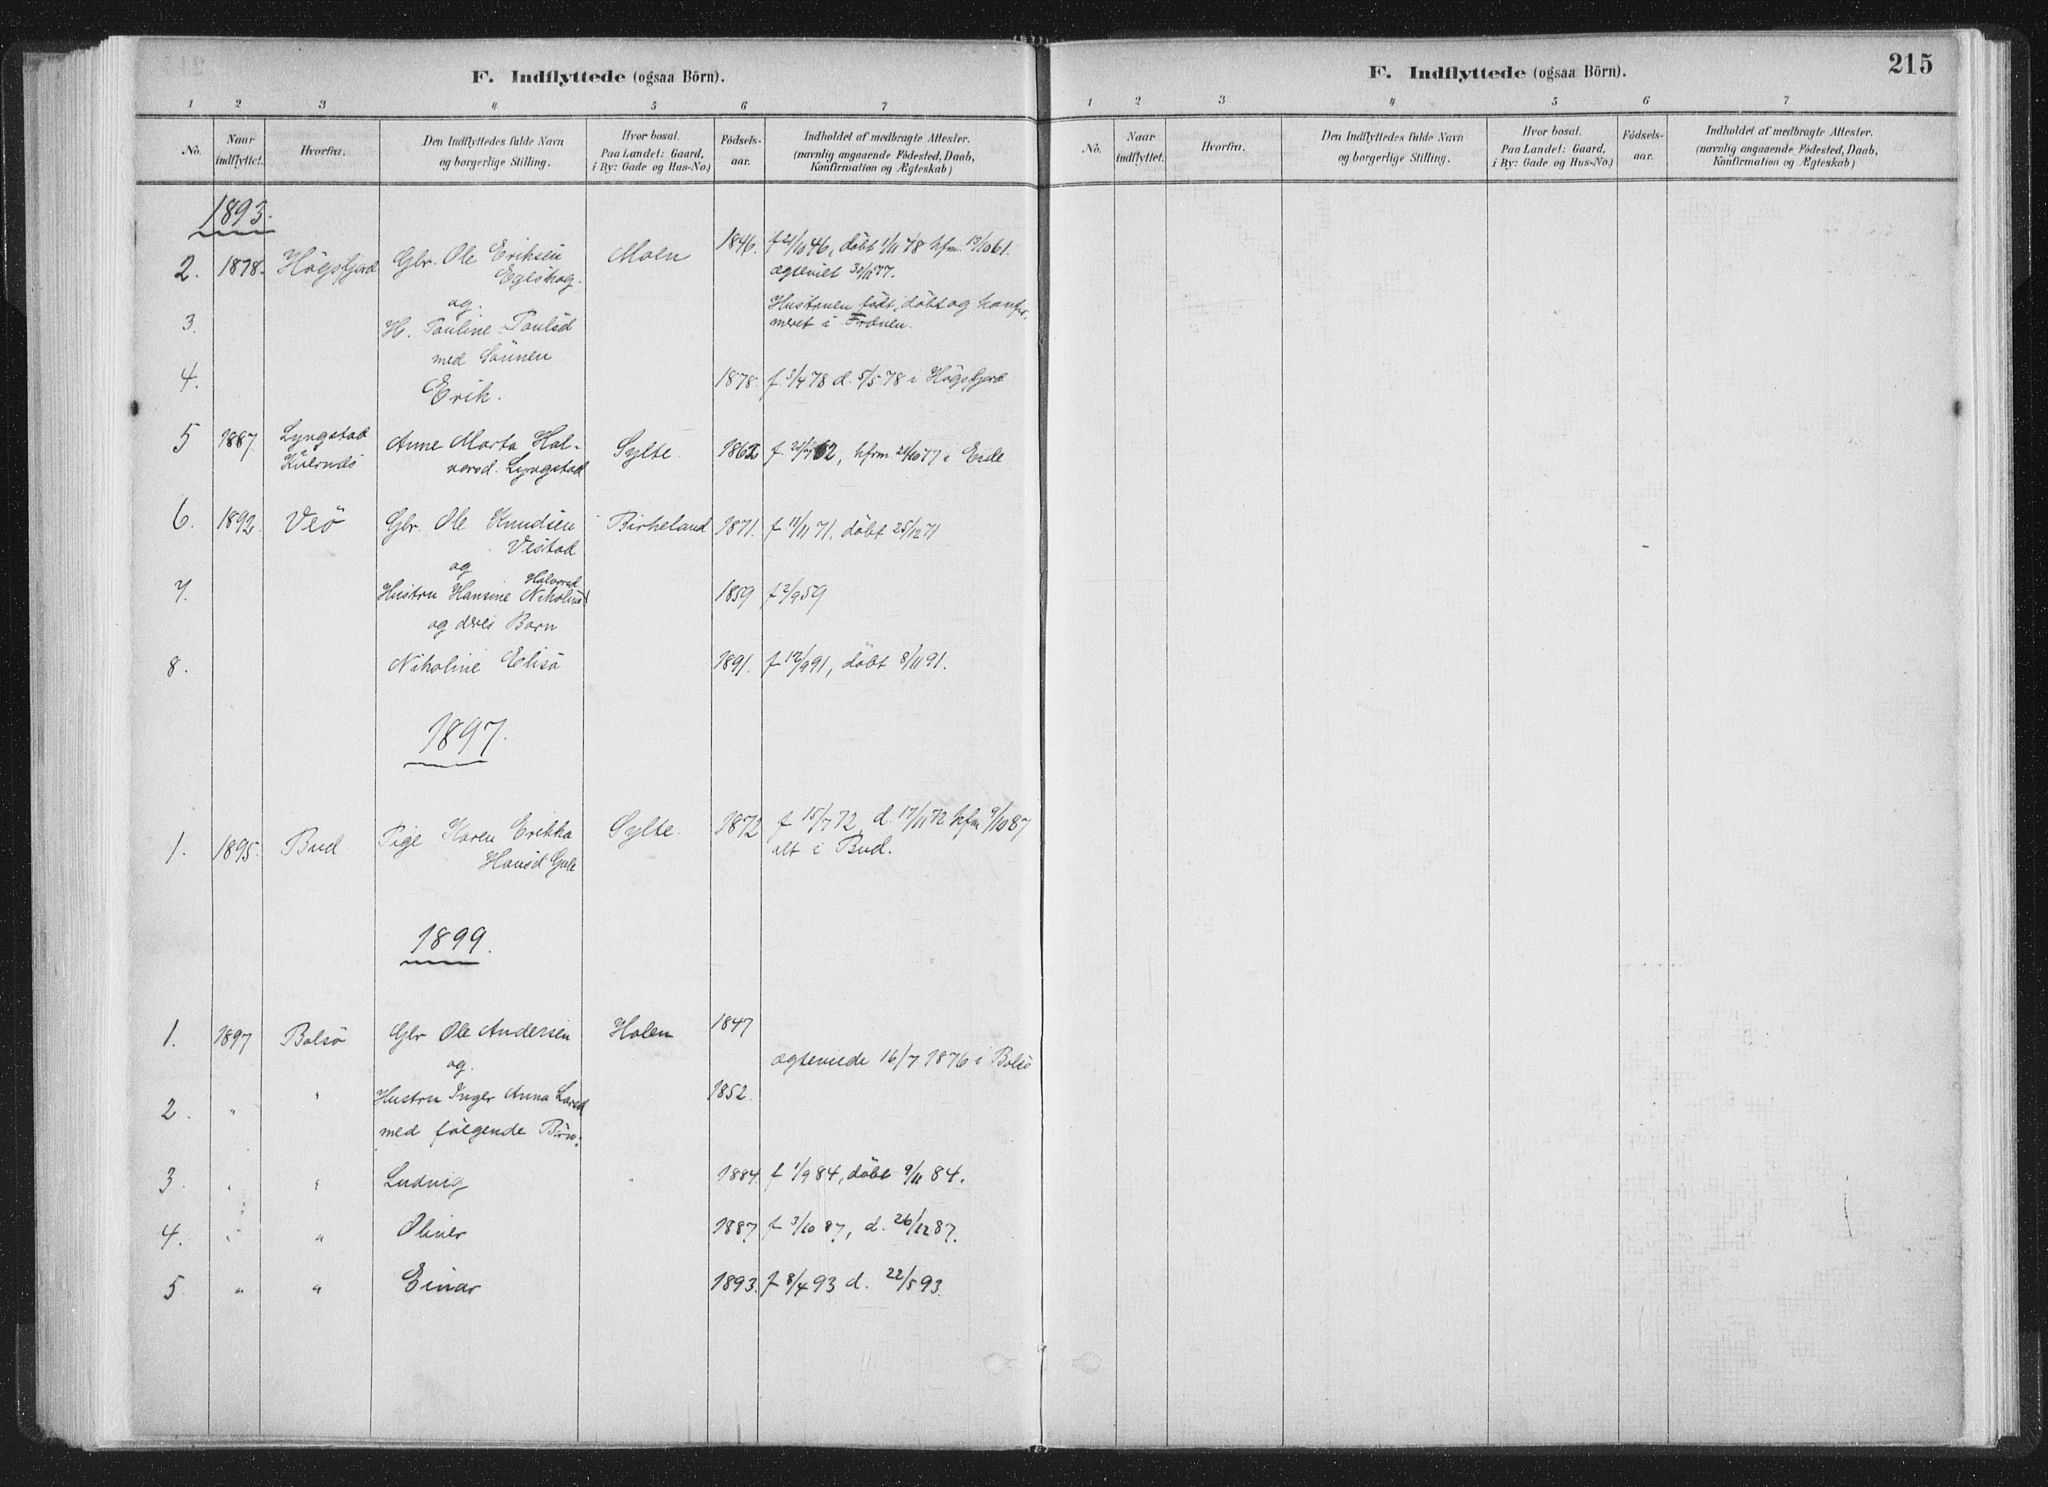 F. Indflyttede (ogsaa Börn).
1 2 3 4 5 6 7
No. Naar indflyttet. Hvorfra. Den Indflyttedes fulde Navn og borgerlige Stilling. Hvor bosat. Paa Landet: Gaard, i By: Gade og Hus-No.) Födsels-aar. Indholdet af medbragte Attester. (navnlig angaaende Födested, Daab, Konfirmation og Ægteskab)
1893.
2. 1878. Högsfjord Gbr. Ole Eriksen Molen 1846. f 21/10 46, döbt 1/11 78 kfm. 13/10 61.
Egeskog. ægteviet 30/11 77.
og Hustruen födt, döbt og konfir-
3. H. Pauline Paulsd meret i Frænen.
med Sönnen
4. Erik. 1878. f 3/4 78 d. 5/5 78 i Högsfjord
5 1887. Lyngstad Anne Marta Hal- Sylte. 1862 f 21/7 62, kfrm. 21/10 77 i Eide
Kværnæs vorsd. Lyngstad
6. 1892. Veö Gbr. Ole Knudsen Birkeland 1871. f 11/11 71, döbt 25/12 71
Vestad
og
Halvorsd
7. Hustru Hansine Nikoline 1859 f 2/9 59
og deres Barn
8. Nikoline Elisa 1891. f 12/9 91, döbt 8/11 91.
1897.
1. 1895. Bud Pige Karen Erikka Sylte. 1872 f 15/7 72, d. 17/11 72 kfm. 9/10 87
Hansd Gule alt i Bud.
1899.
1. 1897 Bolsö Gbr Ole Andersen Holen 1847
og ægteviede 16/7 1876 i Bolsö
2. " " Hustru Inger Anna Larsd 1852.
med følgende Börn:
3. " " Ludvig 1884. f 1/9 84, döbt 9/11 84.
4. " " Oliver 1887. f 3/10 87, d. 26/12 87.
5 " " Einar 1893. f 8/4 93 d. 22/5 93.
F. Indflyttede (ogsaa Börn).
215
1 2 3 4 5 6 7
No. Naar indflyttet. Hvorfra. Den Indflyttedes fulde Navn og borgerlige Stilling. Hvor bosat. Paa Landet: Gaard, i By: Gade og Hus-No.) Födsels-aar. Indholdet af medbragte Attester. (navnlig angaaende Födested, Daab, Konfirmation og Ægteskab)